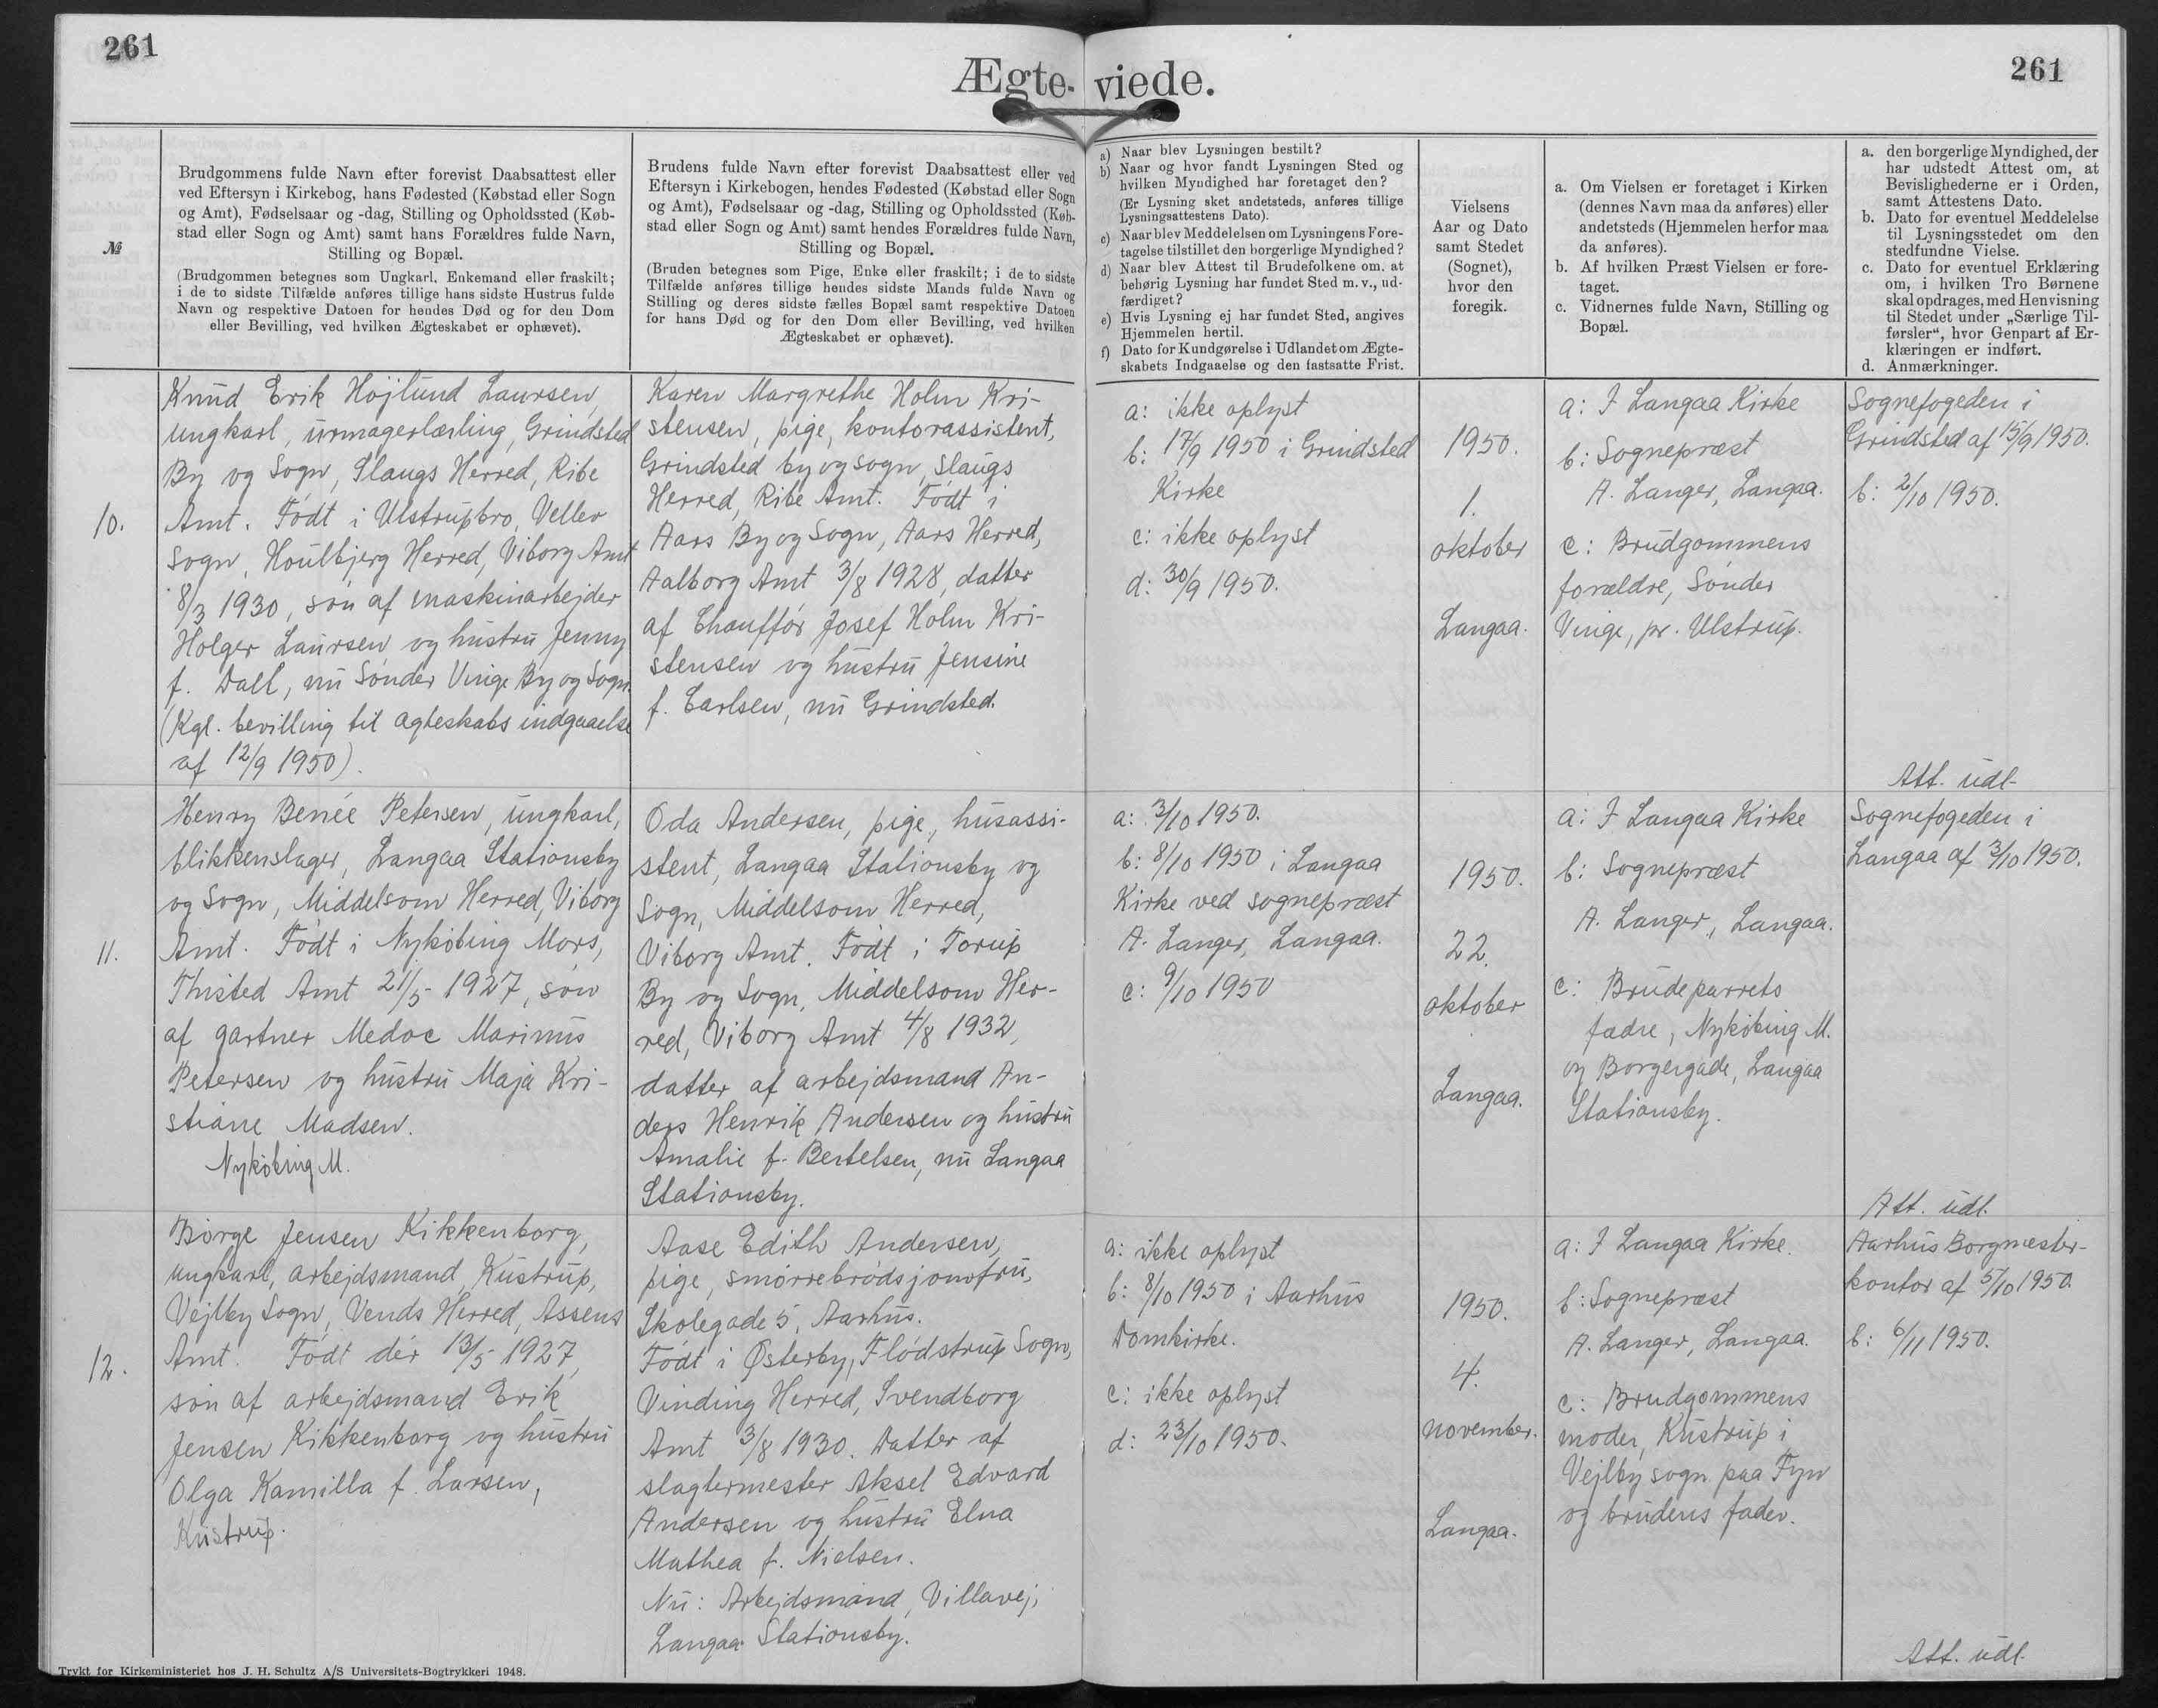 261
261
Ægte- viede.
№
Brudgommens fulde Navn efter forevist Daabsattest eller
ved Eftersyn i Kirkebog, hans Fødested (Købstad eller Sogn
og Amt), Fødselsaar og -dag, Stilling og Opholdssted (Køb-
stad eller Sogn og Amt) samt hans Forældres fulde Navn,
Stilling og Bopæl.
(Brudgommen betegnes som Ungkarl, Enkemand eller fraskilt;
i de to sidste Tilfælde anføres tillige hans sidste Hustrus fulde
Navn og respektive Datoen for hendes Død og for den Dom
eller Bevilling, ved hvilken Ægteskabet er ophævet).
Brudens fulde Navn efter forevist Daabsattest eller ved
Eftersyn i Kirkebogen, hendes Fødested (Købstad eller Sogn
og Amt), Fødselsaar og -dag, Stilling og Opholdssted (Køb-
stad eller Sogn og Amt) samt hendes Forældres fulde Navn,
Stilling og Bopæl.
(Bruden betegnes som Pige, Enke eller fraskilt; i de to sidste
Tilfælde anføres tillige hendes sidste Mands fulde Navn og
Stilling og deres sidste fælles Bopæl samt respektive Datoen
for hans Død og for den Dom eller Bevilling, ved hvilken
Ægteskabet er ophævet).
a) Naar blev Lysningen bestilt?
b) Naar og hvor fandt Lysningen Sted og
hvilken Myndighed har foretaget den?
(Er Lysning sket andetsteds, anføres tillige
Lysningsattestens Dato).
c) Naar blev Meddelelsen om Lysningens Fore-
tagelse tilstillet den borgerlige Myndighed?
d) Naar blev Attest til Brudefolkene om, at
behørig Lysning har fundet Sted m. v., ud-
færdiget?
e) Hvis Lysning ej har fundet Sted, angives
Hjemmelen hertil.
f) Dato for Kundgørelse i Udlandet om Ægte-
skabets Indgaaelse og den fastsatte Frist.
Vielsens
Aar og Dato
samt Stedet
(Sognet),
hvor den
foregik.
a. Om Vielsen er foretaget i Kirken
(dennes Navn maa da anføres) eller
andetsteds (Hjemmelen herfor maa
da anføres).
b. Af hvilken Præst Vielsen er fore-
taget.
c. Vidnernes fulde Navn, Stilling og
Bopæl.
a. den borgerlige Myndighed, der
har udstedt Attest om, at
Bevislighederne er i Orden,
samt Attestens Dato.
b. Dato for eventuel Meddelelse
til Lysningsstedet om den
stedfundne Vielse.
c. Dato for eventuel Erklæring
om, i hvilken Tro Børnene
skal opdrages, med Henvisning
til Stedet under „Særlige Til-
førsler“, hvor Genpart af Er-
klæringen er indført.
d. Anmærkninger.
10.
Knud Erik Højlund Laursen,
ungkarl, urmagerlærling, Grindsted
By og Sogn, Slaugs Herred, Ribe
Amt. Født i Ulstrupbro, Veller
Sogn, Houlbjerg Herred, Viborg Amt
8/3 1930, søn af maskinarbejder
Holger Laursen og hustru Jenny
f. Dall, nu Sønder Vinge By og Sogn.
(Kgl. bevilling til ægteskabs indgaaelse
af 12/9 1950).
Karen Margrethe Holm Kri-
stensen, pige, kontorassistent,
Grindsted by og sogn, Slaugs
Herred, Ribe Amt. Født i
Aars By og Sogn, Aars Herred,
Aalborg Amt 3/8 1928, datter
af Chauffør Josef Holm Kri-
stensen og hustru Jensine
f. Carlsen, nu Grindsted.
a: ikke oplyst
b: 17/9 1950 i Grindsted
Kirke
c: ikke oplyst
d: 30/9 1950.
1950.
1.
oktober
Langaa.
a: I Langaa Kirke
b: Sognepræst
A. Langer, Langaa.
c: Brudgommens
forældre, Sønder
Vinge, pr. Ulstrup.
Sognefogeden i
Grindsted af 15/9 1950.
b: 2/10 1950.
Att. udl.
11.
Henry Benée Petersen, ungkarl,
blikkenslager, Langaa Stationsby
og Sogn, Middelsom Herred, Viborg
Amt. Født i Nykøbing Mors,
Thisted Amt 21/5 1927, søn
af gartner Medoc Marinus
Petersen og hustru Maja Kri-
stiane Madsen.
Nykøbing M.
Oda Andersen, pige, husassi-
stent, Langaa Stationsby og
Sogn, Middelsom Herred,
Viborg Amt. Født i Torup
By og Sogn, Middelsom Her-
red, Viborg Amt 4/8 1932,
datter af arbejdsmand An-
ders Henrik Andersen og hustru
Amalie f. Bertelsen, nu Langaa
Stationsby.
a: 3/10 1950.
b: 8/10 1950 i Langaa
Kirke ved sognepræst
A. Langer, Langaa.
c: 9/10 1950
1950.
22.
oktober
Langaa.
a: I Langaa Kirke
b: Sognepræst
A. Langer, Langaa.
c: Brudeparrets
fædre, Nykøbing M.
og Borgergade, Langaa
Stationsby.
Sognefogeden i
Langaa af 3/10 1950.
Att. udl.
12.
Børge Jensen Kikkenborg,
ungkarl, arbejdsmand, Kustrup,
Vejlby Sogn, Vends Herred, Assens
Amt. Født dér 13/5 1927,
søn af arbejdsmand Erik
Jensen Kikkenborg og hustru
Olga Kamilla f. Larsen,
Kustrup.
Aase Edith Andersen,
pige, smørrebrødsjomfru,
Skolegade 5, Aarhus.
Født i Østerby, Flødstrup Sogn,
Vinding Herred, Svendborg
Amt 3/8 1930. Datter af
slagtermester Aksel Edvard
Andersen og hustru Elna
Mathea f. Nielsen.
Nu: Arbejdsmand, Villavej,
Langaa Stationsby.
a: ikke oplyst
b: 8/10 1950 i Aarhus
Domkirke.
c: ikke oplyst
d: 23/10 1950.
1950.
4.
november.
Langaa.
a: I Langaa Kirke.
b: Sognepræst
A. Langer, Langaa.
c: Brudgommens
moder, Kustrup i
Vejlby sogn paa Fyn
og brudens fader.
Aarhus Borgmester-
kontor af 5/10 1950.
b: 6/11 1950.
Att. udl.
Trykt for Kirkeministeriet hos J. H. Schultz A/S Universitets-Bogtrykkeri 1948.